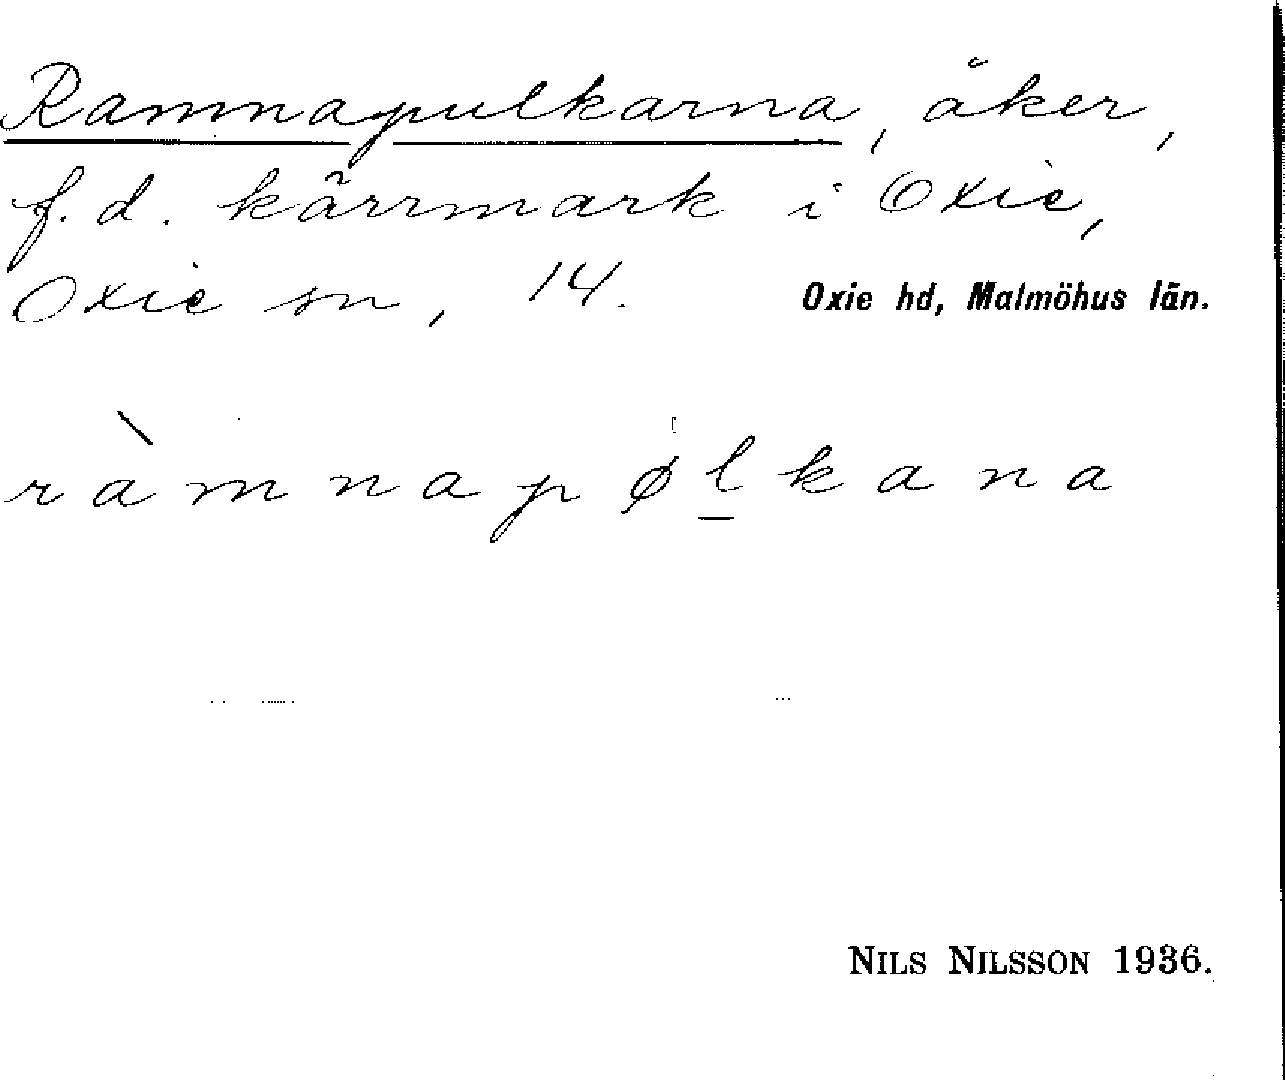 Ramnapulkarna, åker,
f.d. kärrmark i Oxie,
Oxie sn, 14. Oxie hd, Malmöhus län.
ràmnapøl̲kana
NILS NILSSON 1936.